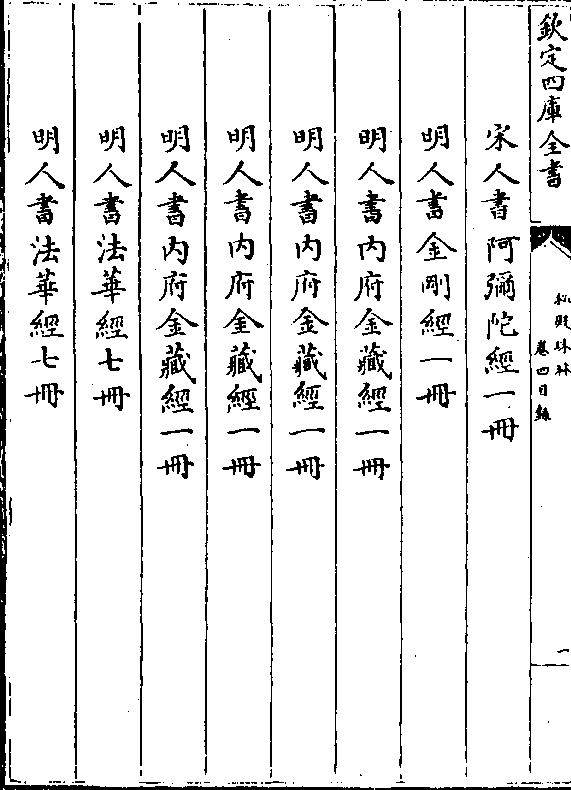 欽定四庫全書
秘殿珠林
卷四目錄
一
宋人書阿彌陀經一冊
明人書金剛經一冊
明人書内府金藏經一冊
明人書内府金藏經一冊
明人書内府金藏經一冊
明人書内府金藏經一冊
明人書法華經七冊
明人書法華經七冊